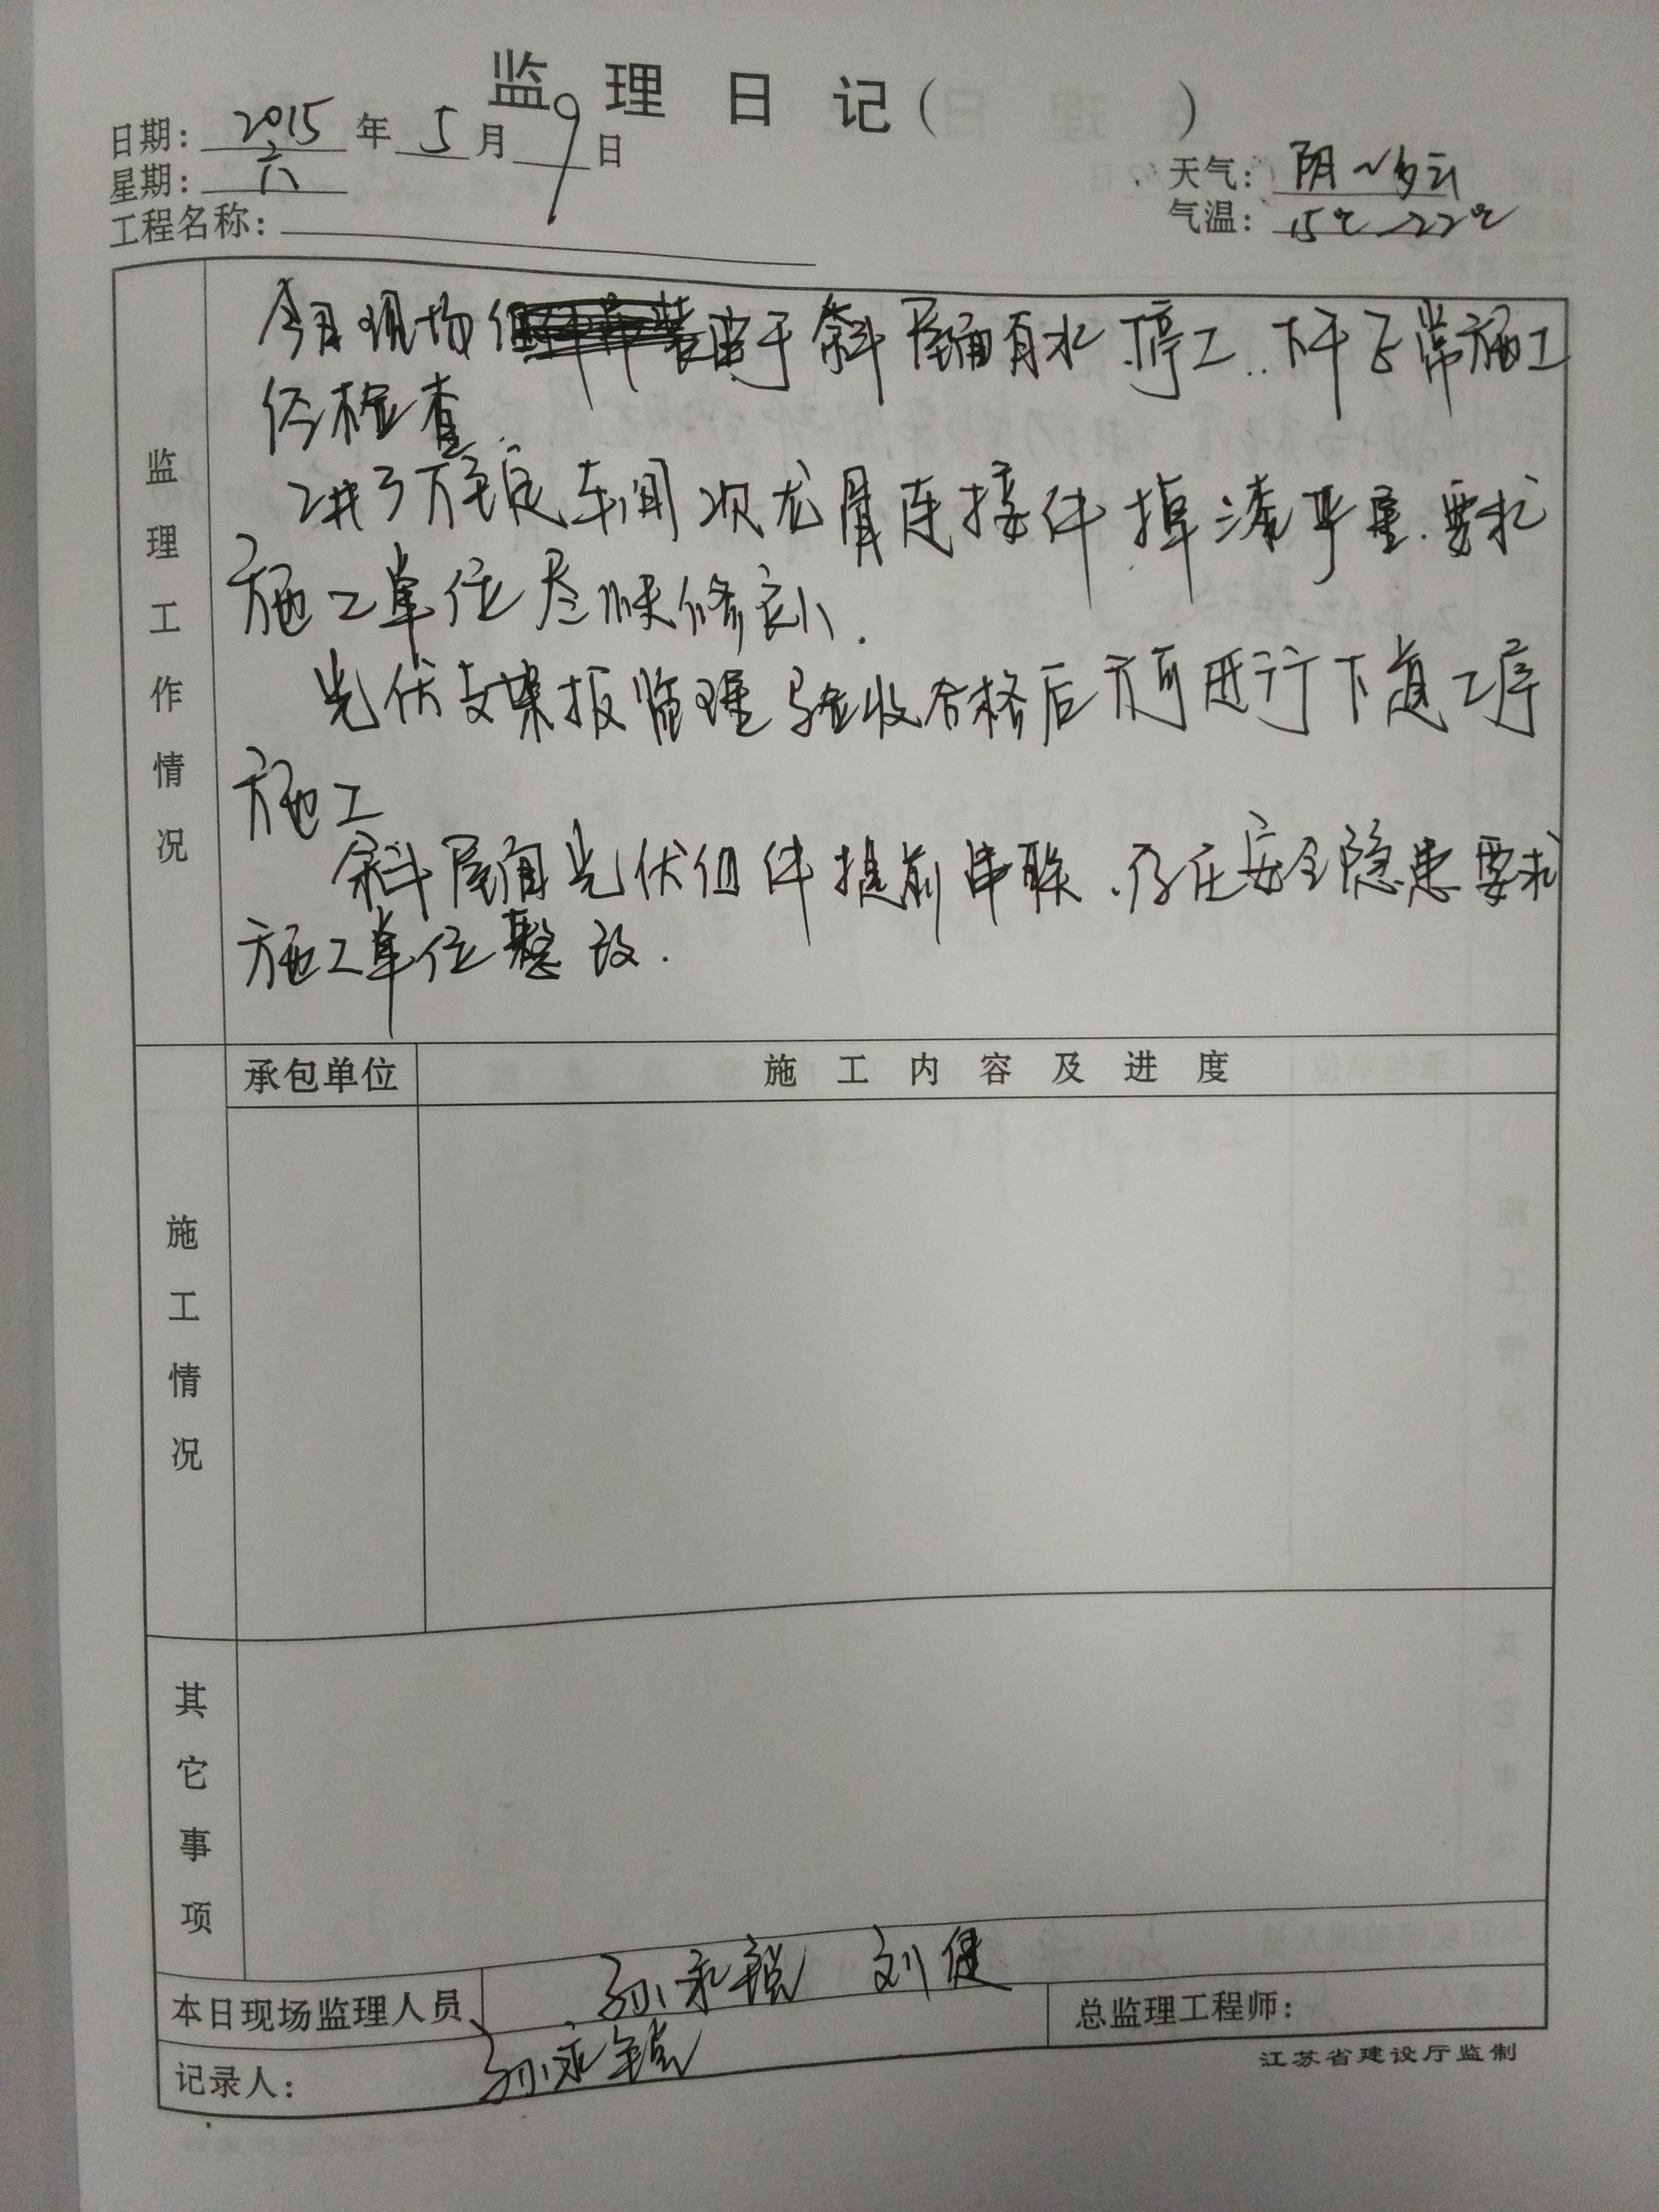 监理日记( )
日期: 2015 年 5 月 9 日
星期: 六
天气: 阴~多云
气温: 15℃~22℃
工程名称:
监理工作情况
今日现场 由于斜屋面有水.停工..下午正常施工
经检查.
车间次龙骨连接件掉漆严重.要求
施工单位尽快修补.
光伏支架报监理验收合格后方可进行下道工序
施工
斜屋面光伏组件提前串联.存在安全隐患要求
施工单位整改.
施工情况
承包单位 施工内容及进度
其它事项
本日现场监理人员 孙永锐 刘健
总监理工程师:
记录人: 孙永锐
江苏省建设厅监制